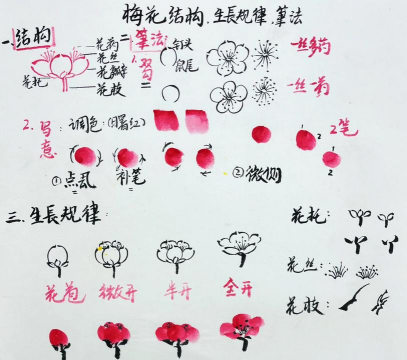 梅花结构.生長规律.筆法
一.结构
花药
花丝
花瓣
花托
花胶
二筆法
1.双勾
钉头
鼠尾
一丝多药
一丝一药
2.写意
调色:(曙红)
2笔
1
2
1
2
①点虱
补笔
②微调
三.生長规律:
花苞
微开
半开
全开
花托:
花丝:
花胶: